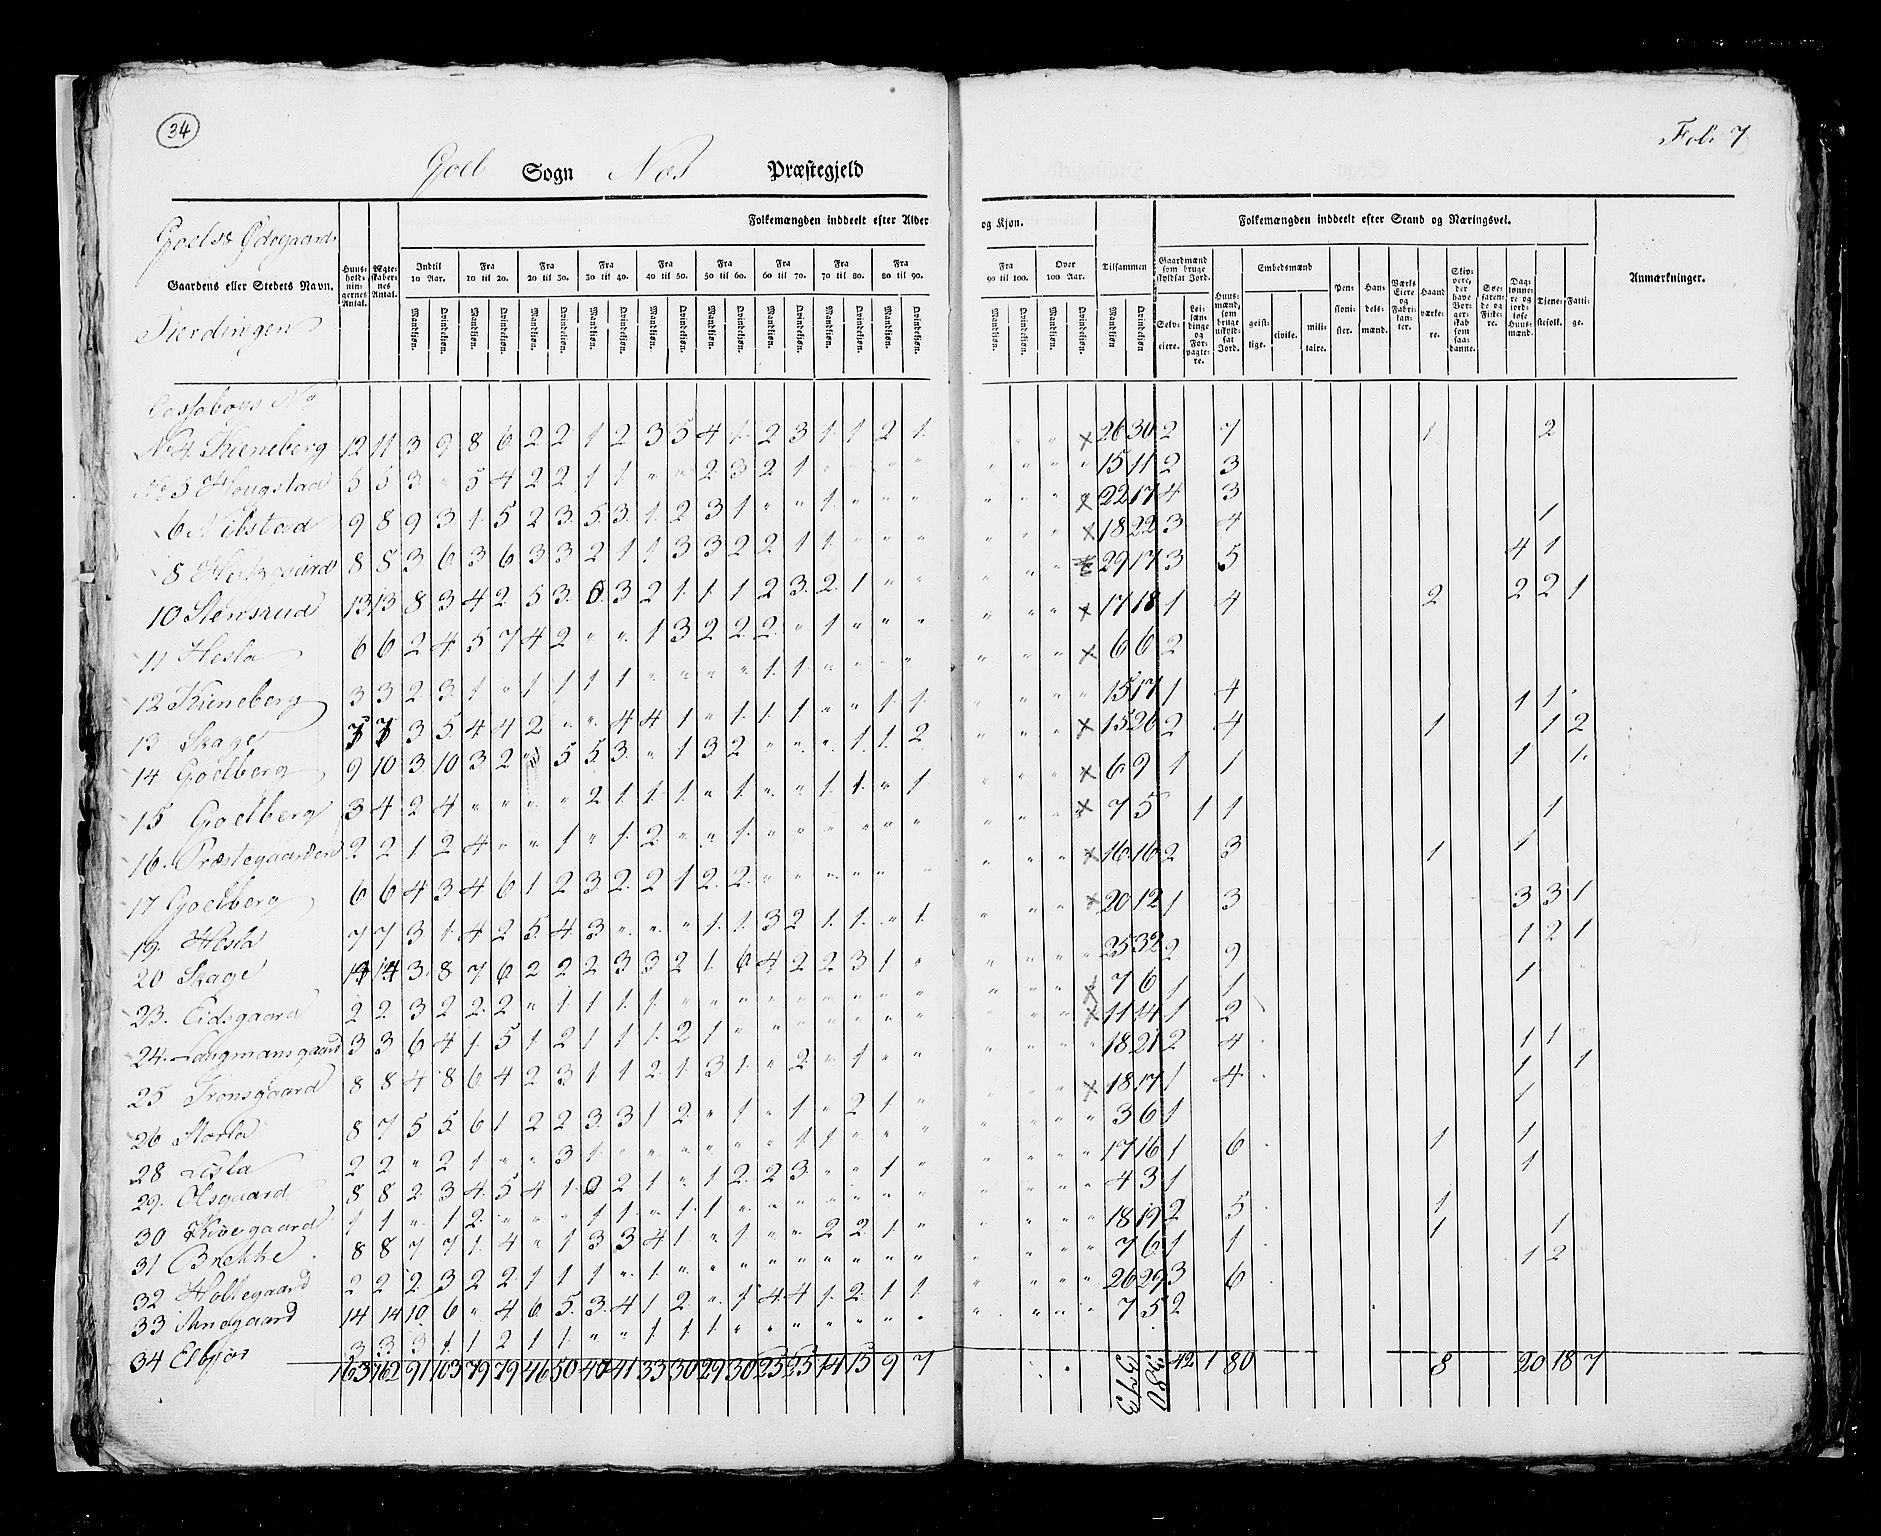 34
Foli 7
Goel Sogn Næs Præstegjeld
Goelst Ødegaards
Fierdingen
Folkemængden inddeelt efter Alder og Kjøn.
Folkemængden inddeelt efter Stand og Næringsvei.
Gaardens eller Stedets Navn.
Huusholdningernes Antal.
Ægteskabernes Antal.
Indtil 10 Aar.
Fra 10 til 20.
Fra 20 til 30.
Fra 30 til 40.
Fra 40 til 50.
Fra 50 til 60.
Fra 60 til 70.
Fra 70 til 80.
Fra 80 til 90.
Fra 90 til 100.
Over 100 Aar.
Tilsammen
Mandkjøn. Qvindekjøn.
Gaardmænd som bruge skyldsat Jord.
Selveiere.
Leilændinge og Forpagtere.
Huusmænd, som bruge uskyldsat Jord.
Embedsmænd
geistlige. civile. militaire.
Pensionister.
Handelsmænd.
Værks Eiere og Fabrikanter.
Haandværkere.
Skippere, der have Borgerskab som saadanne.
Søefarende og Fiskere.
Daglønnere og jordløse Huusmænd.
Tjenestefolk.
Fattige.
Anmærkninger.
No 4 Kieneberg 12 11 3 9 8 6 2 2 1 2 3 5 4 1 2 3 1 1 2 1 26 30 2 7 1 2
No 5 Hougstad 5 5 3 " 5 4 2 2 1 1 " " 2 3 2 1 " " " " 15 11 2 3
6 Nibstad 9 8 9 3 1 5 2 3 5 3 1 2 3 1 " " 1 " " " 22 17 4 3
8 Herksgaard 8 8 3 6 3 6 3 3 2 1 1 3 3 2 2 1 1 " " " 18 22 3 4 1
10 Stensrud 13 13 8 3 4 2 5 3 6 3 2 1 1 1 2 3 2 1 " " 29 17 3 5 4 1
11 Hesla 6 6 2 4 5 7 4 2 " " 1 3 2 2 2 " 1 " " " 17 18 1 4 2 2 2 1
12 Kieneberg 3 3 2 3 1 " 1 1 1 1 " " " " 1 1 " " " " 6 6 2
13 Skage 7 7 3 5 4 4 2 " " 4 4 1 " 1 1 1 " " 1 1 15 17 1 4 1 1
14 Goelberg 9 10 3 10 3 2 " 5 5 3 " 1 3 2 " " " 1 1 2 15 26 2 4 1 1 2
15 Goelberg 3 4 2 4 " " " " 2 1 1 1 " 1 " " 1 1 " 1 6 9 1 1 1 1
16. Præstegaarden 2 2 1 2 4 " " 1 " 1 2 " " 1 " " " " " " 7 5 1 1 1
17 Goelberg 6 6 4 3 4 6 1 2 3 2 2 1 2 2 " " " " " " 16 16 2 3 1 1
19 Hesla 7 7 3 1 4 2 5 4 3 " " " 1 1 3 2 1 1 " 1 20 12 1 3 3 3 1
20 Skage 14 14 3 8 7 6 2 2 2 3 3 2 1 6 4 2 2 3 1 " 25 32 2 9 1 2 1
23. Eidsgaard 2 2 3 2 2 2 " 1 1 1 1 " " " " " " " " " 7 6 1 1 1
24. Laugmansgaard 3 3 6 4 1 5 1 2 1 1 1 2 1 " " " " " " " 11 14 1 2
25 Tronsgaard 8 8 4 8 6 4 2 3 1 1 2 1 3 1 " 2 " 1 " " 18 21 2 4 1 1
26 Storla 8 7 5 5 6 1 2 2 3 3 1 2 " 1 " 1 " 2 1 " 18 17 1 4 1 1
28 Lisla 2 2 " 2 1 " " 3 1 " " " " " " 1 1 " " " 3 6 1 1
29. Olsgaard 8 8 2 3 4 5 4 1 0 2 1 " 1 2 2 3 " " 1 " 17 16 1 6 1 1
30 Kirkegaard 1 1 " 1 2 " " " 1 1 " 1 1 " " " " " " " 4 3 1 1
31 Brekke 8 8 7 7 1 4 " 1 3 3 4 1 " 1 " " 2 2 1 " 18 19 2 5 1
32 Holtegaard 2 2 2 3 2 2 1 1 1 " 1 " " " " " " " " " 7 6 1 1 1 1
33 Sandgaard 14 14 10 6 " 4 6 5 3 4 1 2 " 1 4 4 1 2 1 1 26 29 3 6 1 2
34 3 3 3 1 1 2 1 1 " " 1 1 1 " " " " " " " 7 5 2
163 162 91 103 79 79 46 50 40 41 33 30 29 30 25 25 14 15 9 7 373 380 42 1 80 8 20 18 7